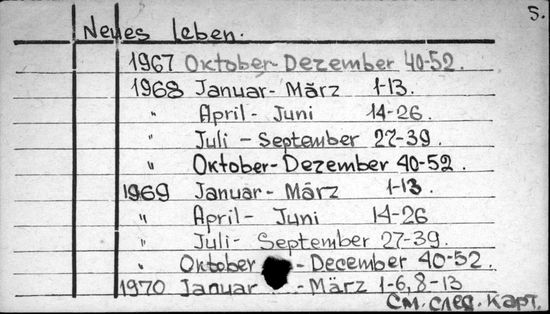 5.
Neues Leben.
1967 Oktober-Dezember 40-52.
1968 Januar-März 1-13.
" April-Juni 14-26.
" Juli-September 27-39.
" Oktober-Dezember 40-52.
1969 Januar-März 1-13.
" April-Juni 14-26
" Juli-September 27-39.
" Oktober-December 40-52.
1970 Januar-März 1-6, 8-13
См. след. карт.